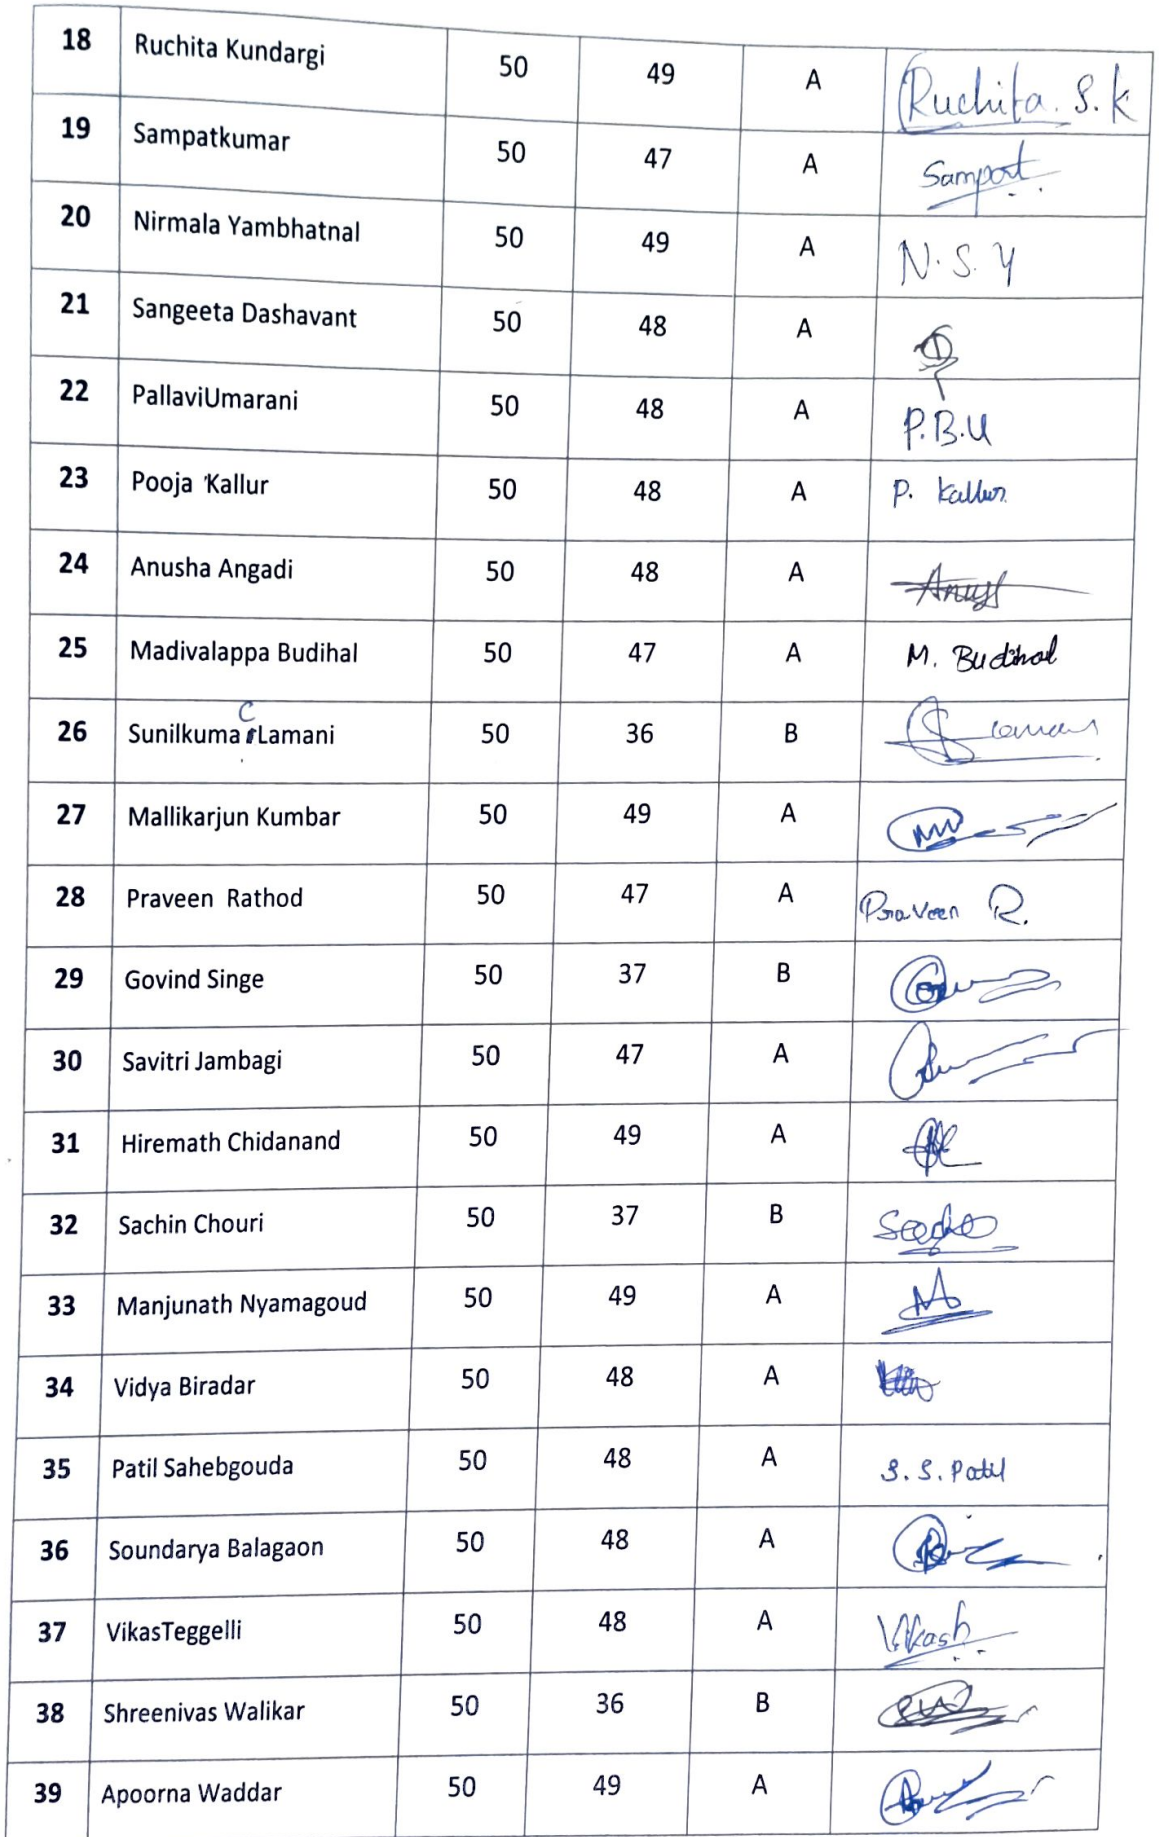 18 Ruchita Kundargi 50 49 A Ruchita. S. K
19 Sampatkumar 50 47 A Sampat
20 Nirmala Yambhatnal 50 49 A N. S. Y
21 Sangeeta Dashavant 50 48 A
22 PallaviUmarani 50 48 A P.B.U
23 Pooja Kallur 50 48 A P. Kallur.
24 Anusha Angadi 50 48 A
25 Madivalappa Budihal 50 47 A M. Budihal
C
26 Sunilkumar Lamani 50 36 B
27 Mallikarjun Kumbar 50 49 A
28 Praveen Rathod 50 47 A Praveen R.
29 Govind Singe 50 37 B
30 Savitri Jambagi 50 47 A
31 Hiremath Chidanand 50 49 A
32 Sachin Chouri 50 37 B
33 Manjunath Nyamagoud 50 49 A
34 Vidya Biradar 50 48 A
35 Patil Sahebgouda 50 48 A S. S. Patil
36 Soundarya Balagaon 50 48 A
37 VikasTeggelli 50 48 A Vikash
38 Shreenivas Walikar 50 36 B
39 Apoorna Waddar 50 49 A